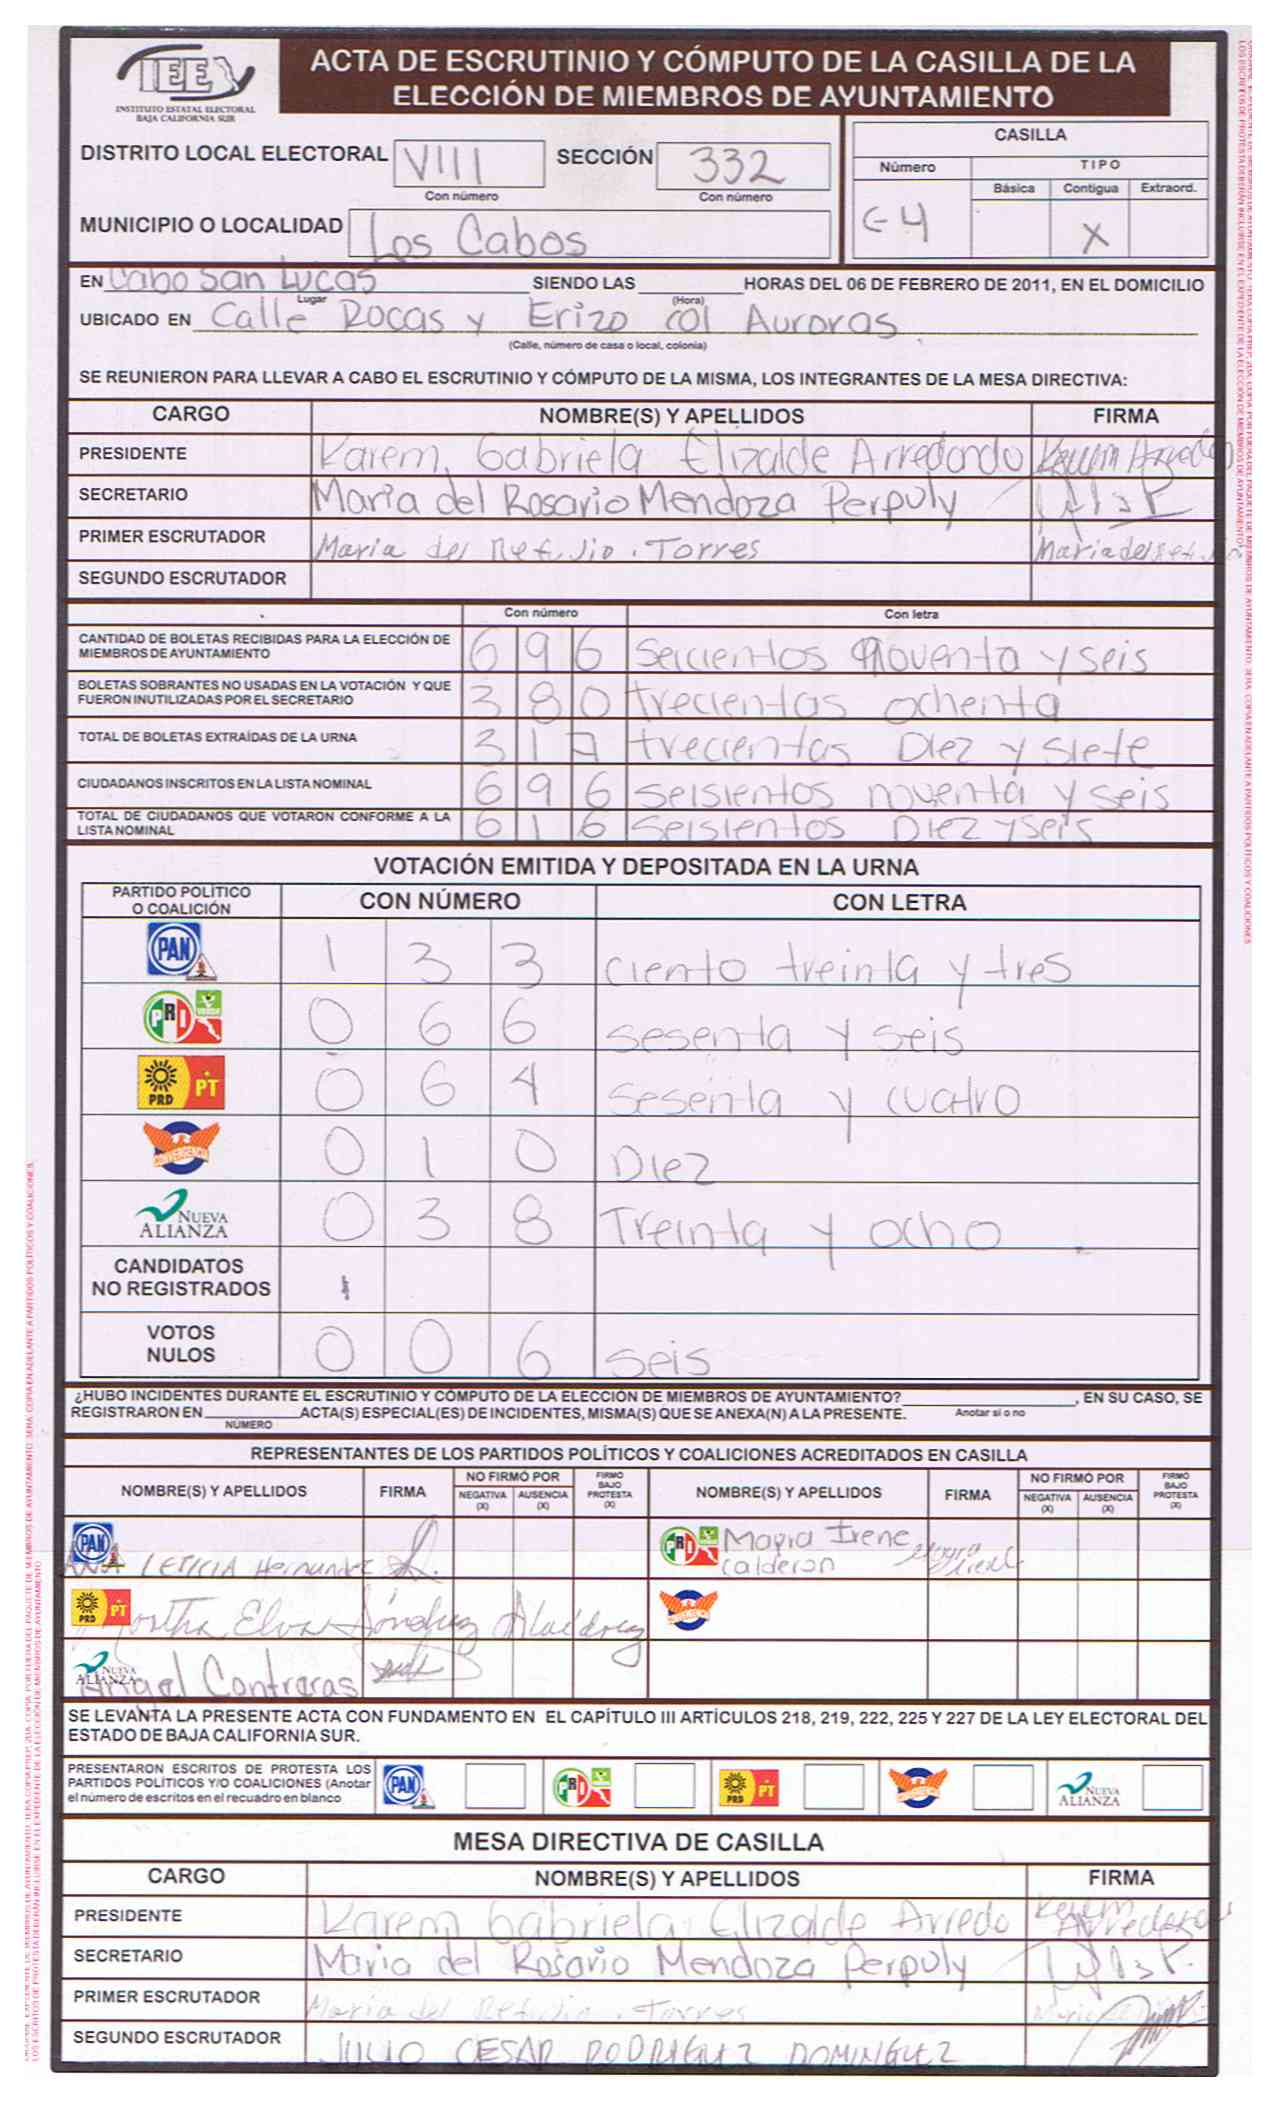 IEEX
INSTITUTO ESTATAL ELECTORAL
BAJA CALIFORNIA SUR
ACTA DE ESCRUTINIO Y CÓMPUTO DE LA CASILLA DE LA
ELECCIÓN DE MIEMBROS DE AYUNTAMIENTO
DISTRITO LOCAL ELECTORAL VIII SECCIÓN 332
Con número Con número
MUNICIPIO O LOCALIDAD Los Cabos
CASILLA
Número TIPO
Básica Contigua Extraord.
C-4 X
EN Cabo San Lucas SIENDO LAS HORAS DEL 06 DE FEBRERO DE 2011, EN EL DOMICILIO
Lugar (Hora)
UBICADO EN Calle Rocas y Erizo col Auroras
(Calle, número de casa o local, colonia)
SE REUNIERON PARA LLEVAR A CABO EL ESCRUTINIO Y CÓMPUTO DE LA MISMA, LOS INTEGRANTES DE LA MESA DIRECTIVA:
CARGO NOMBRE(S) Y APELLIDOS FIRMA
PRESIDENTE Karem Gabriela Elizalde Arredondo
SECRETARIO Maria del Rosario Mendoza Perpuly
PRIMER ESCRUTADOR Maria del Refujio Torres
SEGUNDO ESCRUTADOR
Con número Con letra
CANTIDAD DE BOLETAS RECIBIDAS PARA LA ELECCIÓN DE
MIEMBROS DE AYUNTAMIENTO 696 Seicientos noventa y seis
BOLETAS SOBRANTES NO USADAS EN LA VOTACIÓN Y QUE
FUERON INUTILIZADAS POR EL SECRETARIO 380 trecientas ochenta
TOTAL DE BOLETAS EXTRAÍDAS DE LA URNA 317 trecientas Diez y siete
CIUDADANOS INSCRITOS EN LA LISTA NOMINAL 696 seisientos noventa y seis
TOTAL DE CIUDADANOS QUE VOTARON CONFORME A LA
LISTA NOMINAL 616 seisientos Diez y seis
VOTACIÓN EMITIDA Y DEPOSITADA EN LA URNA
PARTIDO POLÍTICO
O COALICIÓN CON NÚMERO CON LETRA
PAN 1 3 3 ciento treinta y tres
PRI VERDE 0 6 6 sesenta y seis
PRD PT 0 6 4 sesenta y cuatro
CONVERGENCIA 0 1 0 Diez
NUEVA ALIANZA 0 3 8 Treinta y ocho
CANDIDATOS
NO REGISTRADOS
VOTOS
NULOS 0 0 6 seis
¿HUBO INCIDENTES DURANTE EL ESCRUTINIO Y CÓMPUTO DE LA ELECCIÓN DE MIEMBROS DE AYUNTAMIENTO? , EN SU CASO, SE
REGISTRARON EN ACTA(S) ESPECIAL(ES) DE INCIDENTES, MISMA(S) QUE SE ANEXA(N) A LA PRESENTE. Anotar si o no
NÚMERO
REPRESENTANTES DE LOS PARTIDOS POLÍTICOS Y COALICIONES ACREDITADOS EN CASILLA
NOMBRE(S) Y APELLIDOS FIRMA NO FIRMÓ POR NEGATIVA (X) AUSENCIA (X) FIRMÓ BAJO PROTESTA (X) NOMBRE(S) Y APELLIDOS FIRMA NO FIRMÓ POR NEGATIVA (X) AUSENCIA (X) FIRMÓ BAJO PROTESTA (X)
PAN ANA LETICIA Hernandez PRI Mayra Irene
Calderon
PRD PT Martha Elva Sánchez CONVERGENCIA
NUEVA ALIANZA Angel Contreras
SE LEVANTA LA PRESENTE ACTA CON FUNDAMENTO EN EL CAPÍTULO III ARTÍCULOS 218, 219, 222, 225 Y 227 DE LA LEY ELECTORAL DEL
ESTADO DE BAJA CALIFORNIA SUR.
PRESENTARON ESCRITOS DE PROTESTA LOS
PARTIDOS POLÍTICOS Y/O COALICIONES (Anotar
el número de escritos en el recuadro en blanco
PAN PRI PRD PT CONVERGENCIA NUEVA ALIANZA
MESA DIRECTIVA DE CASILLA
CARGO NOMBRE(S) Y APELLIDOS FIRMA
PRESIDENTE Karem Gabriela Elizalde Arredo
SECRETARIO Maria del Rosario Mendoza Perpuly
PRIMER ESCRUTADOR Maria del Refujio Torres
SEGUNDO ESCRUTADOR JULIO CESAR RODRIGUEZ DOMINGUEZ